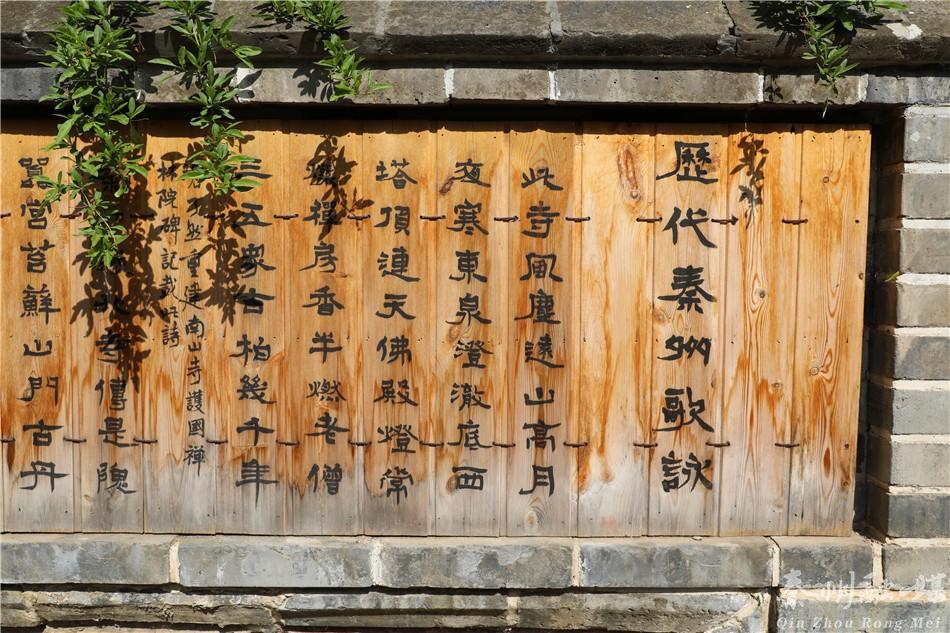 歷代秦州歌詠
此寺風塵遠山高月
夜寒東泉澄澈底西
塔頂連天佛殿燈常
禪房香半燃老僧
三五眾古柏幾千年
然重建南山寺護國禪
林院碑記載此詩
北寺傳是隗
囂宮苔蘚山門古丹
秦州融媒
Qin Zhou Rong Mei